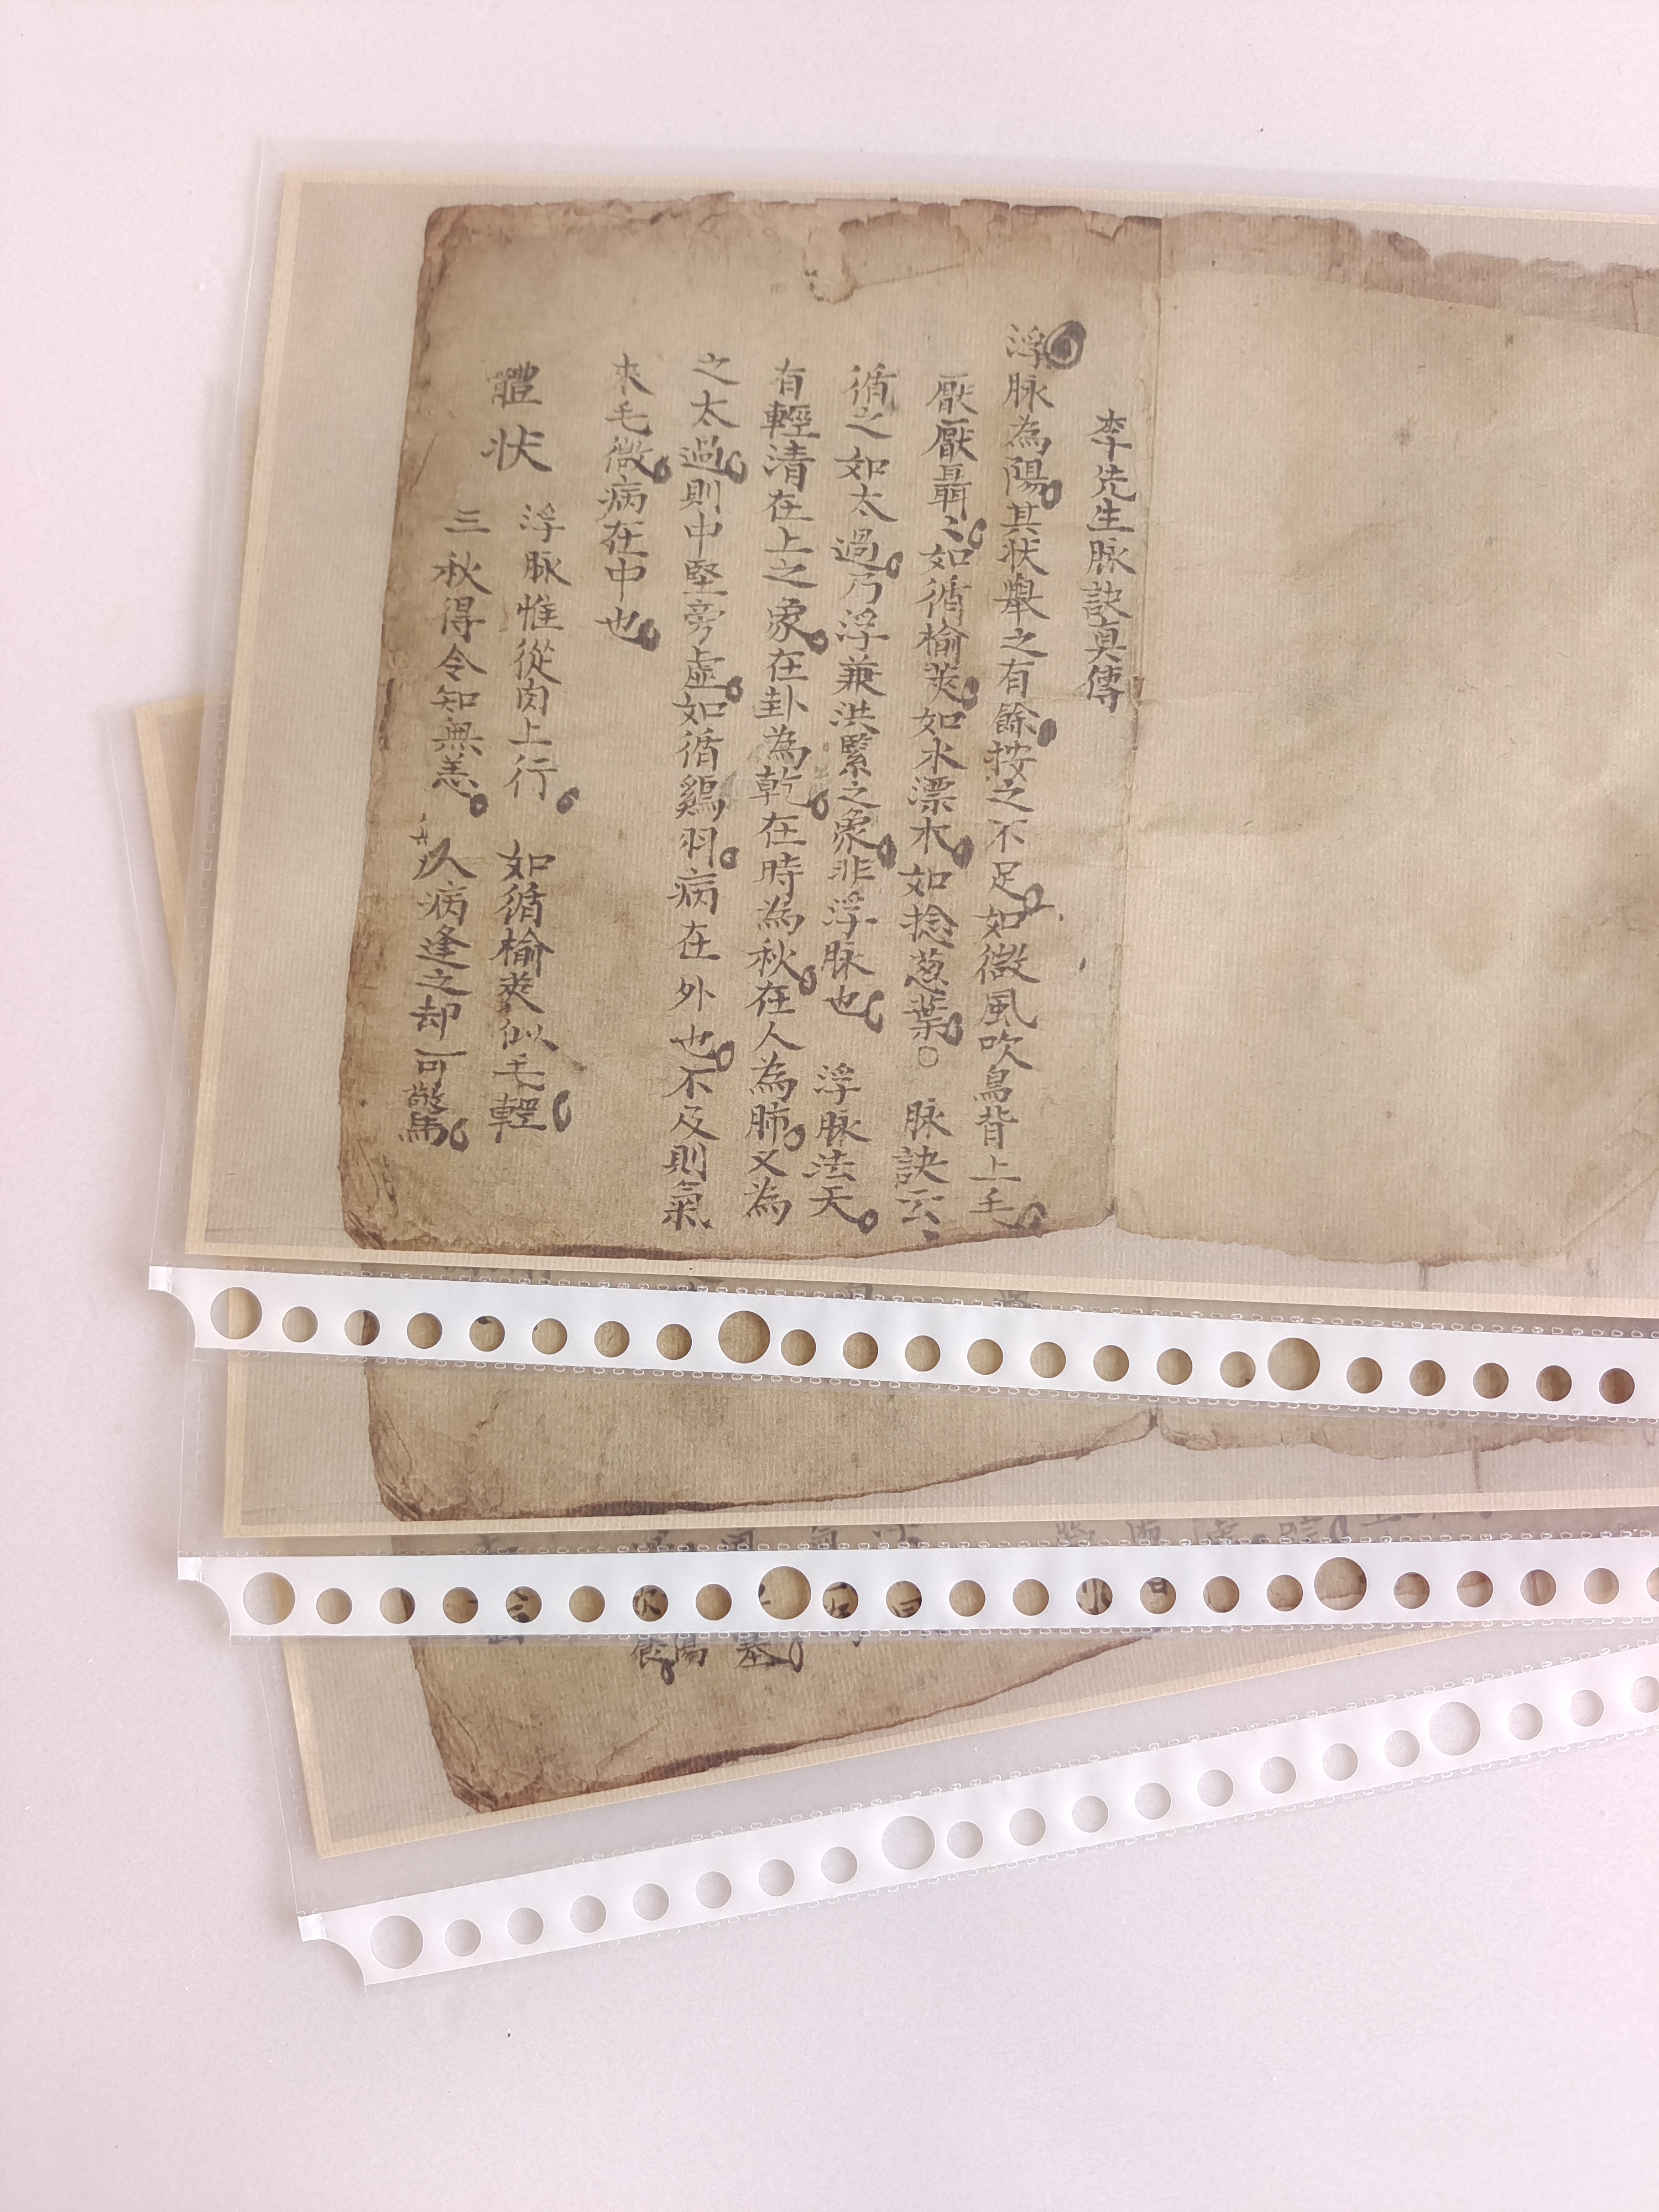 李先生脉訣真傳
浮脉為陽其状舉之有餘按之不足如微風吹鳥背上毛
厭厭聶〻如循榆莢如水漂木如捻葱葉○ 脉訣云〻
循之如太過乃浮兼洪緊之象非浮脉也 浮脉法天
有輕清在上之象在卦為乾在時為秋在人為肺又為
之太過則中堅旁虛如循鷄羽病在外也不及則氣
來毛微病在中也
體状
浮脉惟從肉上行 如循榆莢似毛輕
三秋得令知無恙 久病逢之却可驚